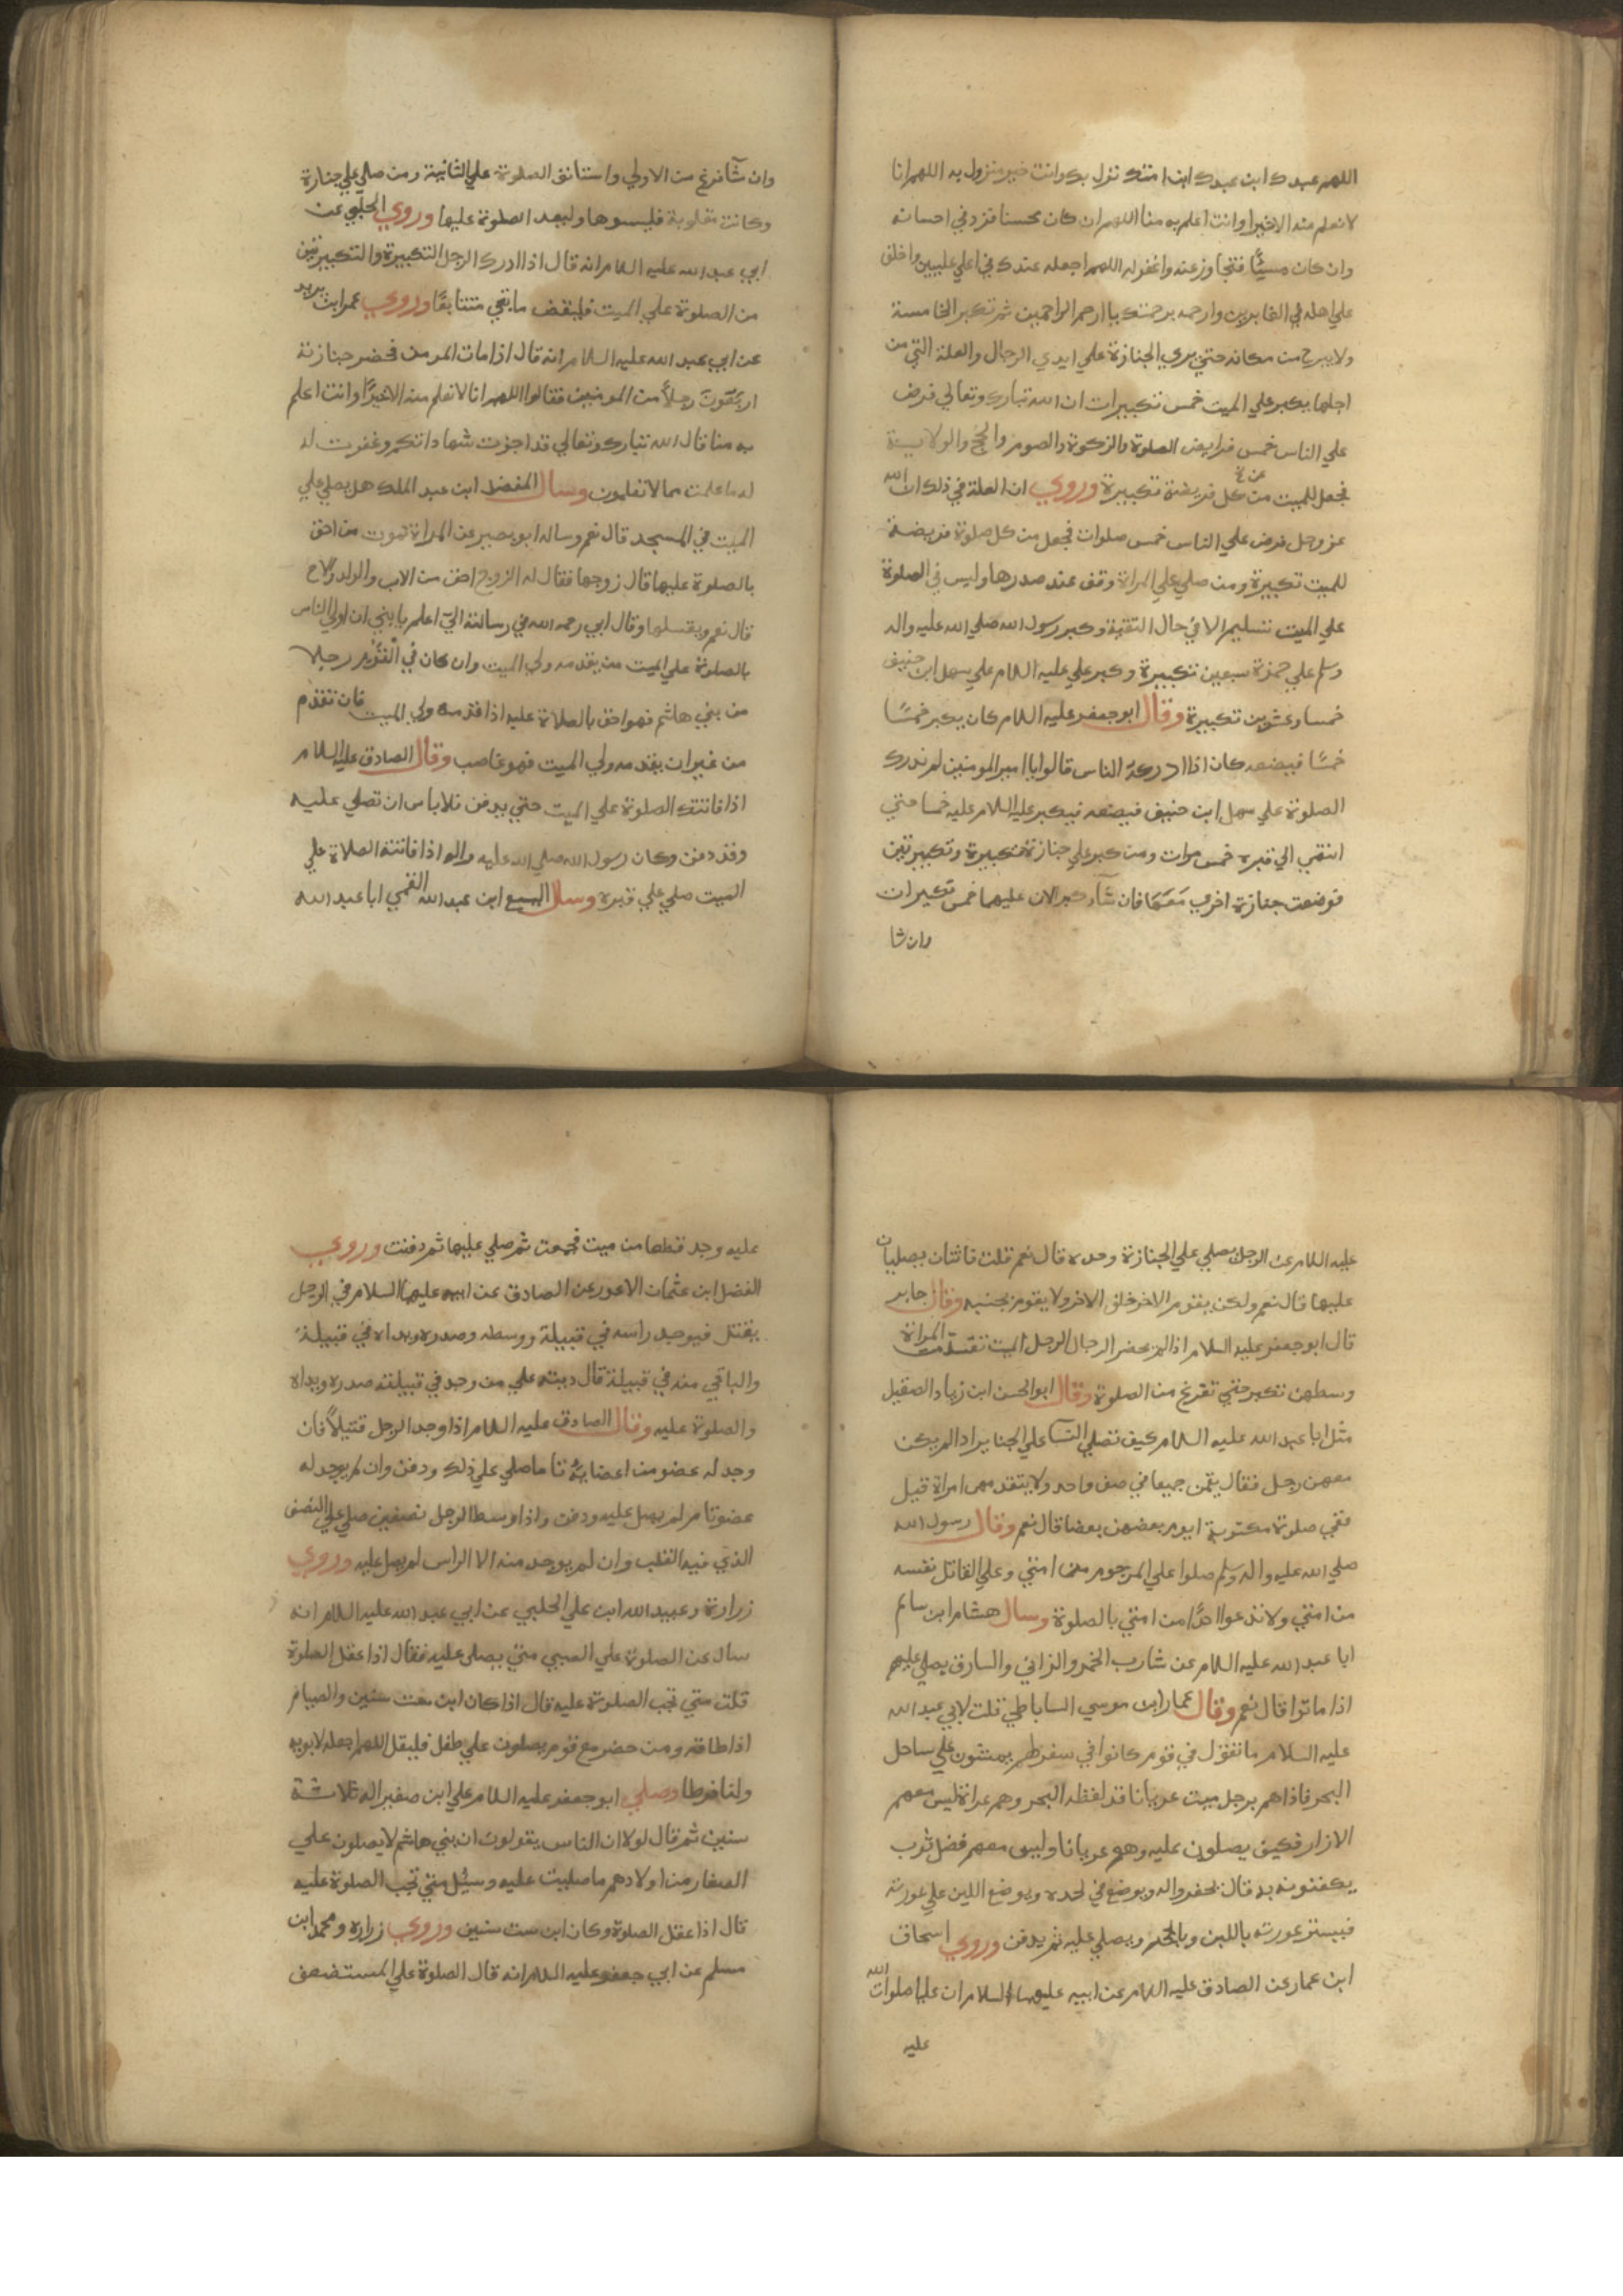 اللهم عبدك ابن عبدك ابن امتك نزل بك وانت خير منزول به اللهم انا
لا نعلم منه الا خيرا وانت اعلم به منا اللهم ان كان محسنا فزد في احسانه
وان كان مسيئًا فتجاوز عنه واغفر له اللهم اجعله عندك في اعلي عليين واخلف
علي اهله في الغابرين وارحمه برحمتك يا ارحم الراحمين ثم تكبر الخامسة
ولا يبرح من مكانه حتي يري الجنازة علي ايدي الرجال والعلة التي من
اجلها يكبر علي الميت خمس تكبيرات ان الله تبارك وتعالي فرض
علي الناس خمس فرايض الصلوة والزكوة والصوم والحج والولاية
فجعل للميت من كل فريضة تكبيرة وروي ان العلة في ذلك ان الله
عز وجل فرض علي الناس خمس صلوات فجعل من كل صلوة فريضة
للميت تكبيرة ومن صلي علي المراة وقف عند صدرها وليس في الصلوة
علي الميت تسليم الا في حال التقية وكبر رسول الله صلي الله عليه واله
وسلم علي حمزة سبعين تكبيرة وكبر علي عليه السلام علي سهل ابن حنيف
خمسا وعشرين تكبيرة وقال ابو جعفر عليه السلام كان يكبر خمسًا
خمسًا فيضعه كان اذا ادركه الناس قالوا يا امير المومنين لم ندرك
الصلوة علي سهل ابن حنيف فيضعه فيكبر عليه السلام عليه خمسا حتي
انتهي الي قبره خمس مرات ومن كبر علي جنازة تكبيرة وتكبيرتين
فوضعت جنازة اخري معها فان شآء كبر الان عليهما خمس تكبيرات
وان شا
وان شآ فرغ من الاولي واستانف الصلوة علي الثانية ومن صلي علي جنازة
وكانت مقلوبة فليسوها وليعد الصلوة عليها وروي الحلبي عن
ابي عبد الله عليه السلام انه قال اذا ادرك الرجل التكبيرة والتكبيرتين
من الصلوة علي الميت فليقض ما بقي متتابعًا وروي عمر ابن يزيد
عن ابي عبد الله عليه السلام انه قال اذا مات المومن فحضر جنازته
اربعون رجلاً من المومنين فقالوا اللهم انا لا نعلم منه الا خيرًا وانت اعلم
به منا قال الله تبارك وتعالي قد اجزت شهاداتكم وغفرت له
له ما علمت مما لا تعلمون وسال المفضل ابن عبد الملك هل يصلي علي
الميت في المسجد قال نعم وساله ابو بصير عن المراة تموت من احق
بالصلوة عليها قال زوجها فقال له الزوج احق من الاب والولد والاخ
قال نعم ويغسلها وقال ابي رحمه الله في رسالته الي اعلم يا بني ان اولي الناس
بالصلوة علي الميت من يقدمه ولي الميت وان كان في القوم رجلا
من بني هاشم فهو احق بالصلاة عليه اذا قدمه ولي الميت فان تقدم
من غير ان يقدمه ولي الميت فهو غاصب وقال الصادق عليه السلام
اذا فاتتك الصلوة علي الميت حتي يدفن فلا باس ان تصلي عليه
وقد دفن وكان رسول الله صلي الله عليه واله اذا فاتته الصلاة علي
الميت صلي علي قبره وسال اليسع ابن عبد الله القمي ابا عبد الله
عليه السلام عن الرجل يصلي علي الجنازة وحده قال نعم قلت فاثنان يصليان
عليها قال نعم ولكن يقوم الاخر خلف الاخر ولا يقوم بجنبه وقال جابر
قال ابو جعفر عليه السلام اذا لم يحضر الرجال الرجل الميت تقدمت المراة
وسطهن تكبر حتي تفرغ من الصلوة وقال ابو الحسن ابن زياد الصيقل
سئل ابا عبد الله عليه السلام كيف تصلي النسآ علي الجنايز اذا لم يكن
معهن رجل فقال يقمن جميعا في صف واحد ولا يتقدمهن امراة قيل
ففي صلوة مكتوبة ايوم بعضهن بعضا قال نعم وقال رسول الله
صلي الله عليه واله وسلم صلوا علي المرجوم من امتي وعلي القاتل نفسه
من امتي ولا تدعوا احدًا من امتي بالصلوة وسال هشام ابن سالم
ابا عبد الله عليه السلام عن شارب الخمر والزاني والسارق يصلي عليهم
اذا ماتوا قال نعم وقال عمار ابن موسي الساباطي قلت لابي عبد الله
عليه السلام ما تقول في قوم كانوا في سفر لهم يمشون علي ساحل
البحر فاذا هم برجل ميت عريانا قد لفظه البحر وهم عراة ليس معهم
الا زار فكيف يصلون عليه وهو عريانا وليس معهم فضل ثوب
يكفنونه به قال يحفر واله ويوضع في لحده ويوضع اللبن علي عورته
فيستر عورته باللبن وبالحجر ويصلي عليه ثم يدفن وروي اسحاق
ابن عمار عن الصادق عليه السلام عن ابيه عليهما السلام ان عليا صلوات الله
عليه
عليه وجد قطعا من ميت فجمعت ثم صلي عليها ثم دفنت وروي
الفضل ابن عثمان الاعور عن الصادق عن ابيه عليهما السلام في الرجل
يقتل فيوجد راسه في قبيلة ووسطه وصدره ويداه في قبيلة
والباقي منه في قبيلة قال ديته علي من وجد في قبيلته صدره ويداه
والصلوة عليه وقال الصادق عليه السلام اذا وجد الرجل قتيلاً فان
وجد له عضو من اعضايه تاما صلي علي ذلك ودفن وان لم يوجد له
عضو تام لم يصل عليه ودفن واذا وسط الرجل نصفين صلي علي النصف
الذي فيه القلب وان لم يوجد منه الا الراس لم يصل عليه وروي
زرارة وعبيد الله ابن علي الحلبي عن ابي عبد الله عليه السلام انه
سال عن الصلوة علي الصبي متي يصلي عليه فقال اذا عقل الصلوة
قلت متي تجب الصلوة عليه قال اذا كان ابن ست سنين والصيام
اذا طاقه ومن حضر مع قوم يصلون علي طفل فليقل اللهم اجعله لابويه
ولنا فرطا وصلي ابو جعفر عليه السلام علي ابن صغير اله ثلاثة
سنين ثم قال لولا ان الناس يقولون ان بني هاشم لا يصلون علي
الصغار من اولادهم ما صليت عليه وسيل متي تجب الصلوة عليه
قال اذا عقل الصلوة وكان ابن ست سنين وروي زراره ومحمد ابن
مسلم عن ابي جعفر عليه السلام انه قال الصلوة علي المستضعف